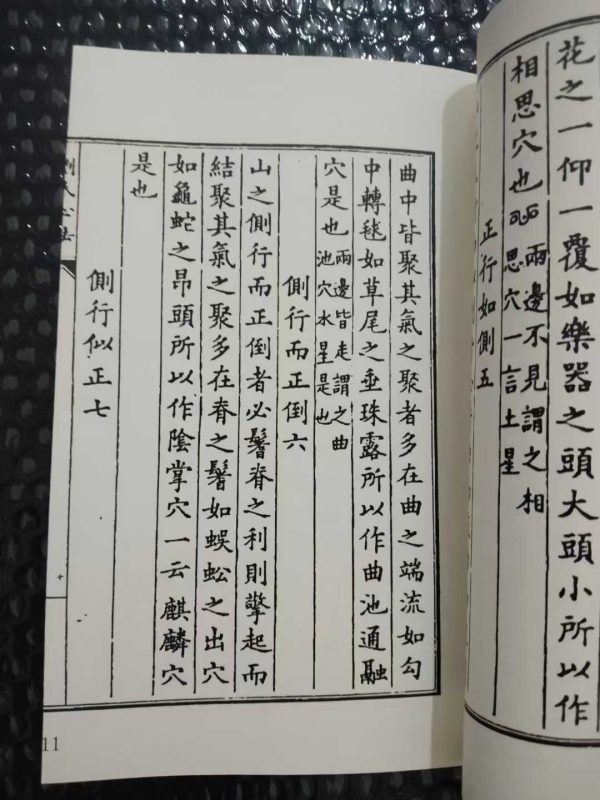 花之一仰一覆如樂器之頭大頭小所以作
相思穴也兩邊不見謂之相
思穴一言土星
正行如側五
曲中皆聚其氣之聚者多在曲之端流如勾
中轉毬如草尾之垂珠露所以作曲池通融
穴是也兩邊皆走謂之曲
池穴水星是也
側行而正倒六
山之側行而正倒者必鬐脊之利則擎起而
結聚其氣之聚多在脊之鬐如蜈蚣之出穴
如龜蛇之昂頭所以作陰掌穴一云麒麟穴
是也
側行似正七
11